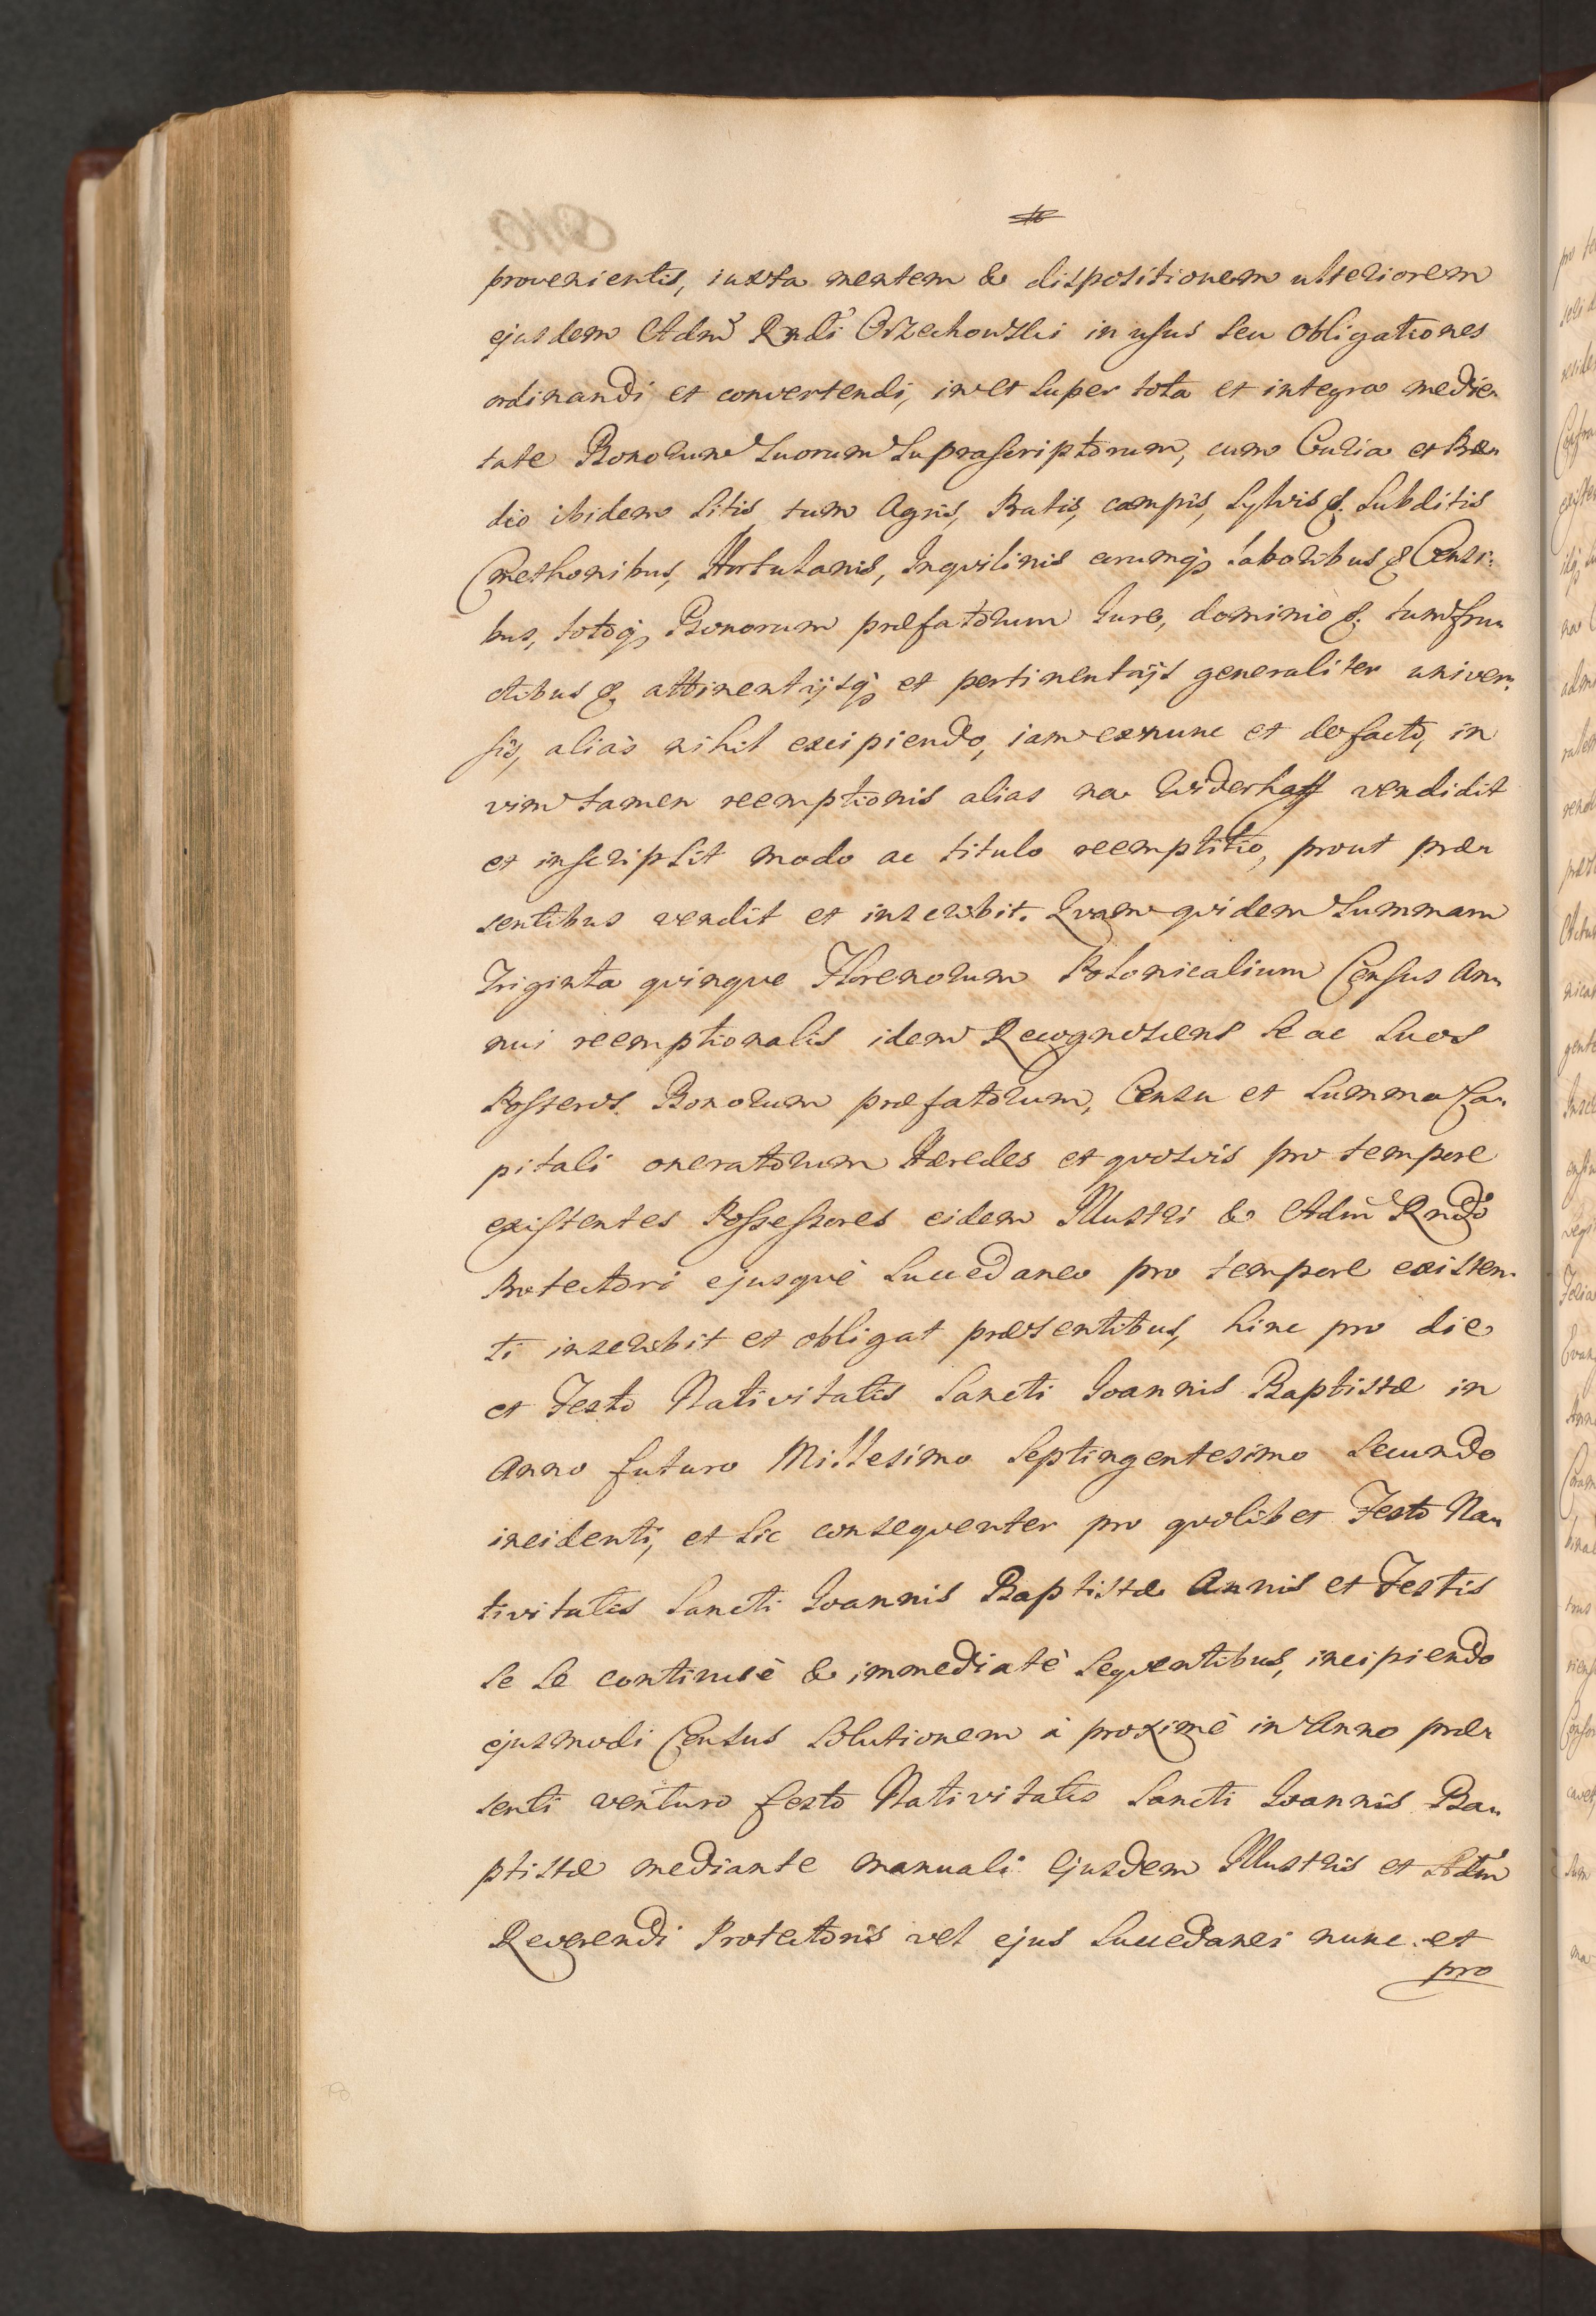 provenientis, iuxta mentem & dispositionem ulteriorem
ejusdem Adm Rndi Orzechowski in usus seu obligationes
ordinandi et convertendi, in et super tota et integra medie
tate Bonorum Suorum Suprascriptorum, cum Curia et Præ
dio ibidem sitis, tum Agris, Pratis, campis, Sylvis &. Subditis
Cmethonibus, Hortulanis, Inqvilinis earumq; laboribus & Censi:
bus, totoq; Bonorum præfatorum Iure, dominio &. tum fru
ctibus &. attinentijsq; et pertinentijs generaliter univer:
sis, aliàs nihil excipiendo, iam exnunc et de facto, in
vim tamen reemptionis alias na widerkaff vendidit
et inscripsit modo ac titulo reemptitio, prout præ
sentibus vendit et inscribit. Qvam qvidem Summam
Triginta qvinqve Florenorum Polonicalium Census An
nui reemptionalis idem Recognoscens se ac suos
Posteros Bonorum præfatorum, Censu et Summa Ca
pitali oneratorum Hæredes et qvosvis pro tempore
existentes Possessores eidem Illustri & Adm Rndo
Protectori ejusqvè Succedaneo pro tempore existen
ti inscribit et obligat præsentibus, hinc pro die
et Festo Nativitatis Sancti Joannis Baptistæ in
Anno futuro Millesimo Septingentesimo Secundo
incidenti, et sic conseqventer pro qvolibet Festo Na
tivitatis Sancti Joannis Baptistæ Annis et Festis
se se continuè & immediatè Seqventibus, incipiendo
ejusmodi Census Solutionem à proximè in Anno præ
senti venturo festo Nativitatis Sancti Joannis Ba
ptistæ mediante manuali Ejusdem Illustris et Adm
Reverendi Protectoris vel ejus Succedanei nunc et
pro